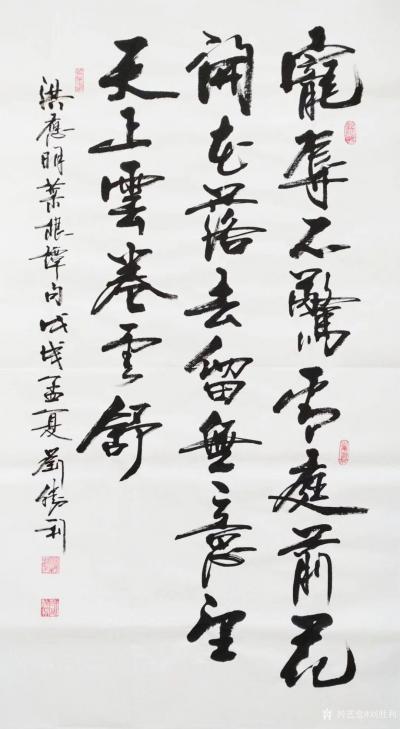 寵辱不驚看庭前花
開花落去留無意望
天上雲卷雲舒
洪應明菜根譚句戊戌孟夏劉勝利